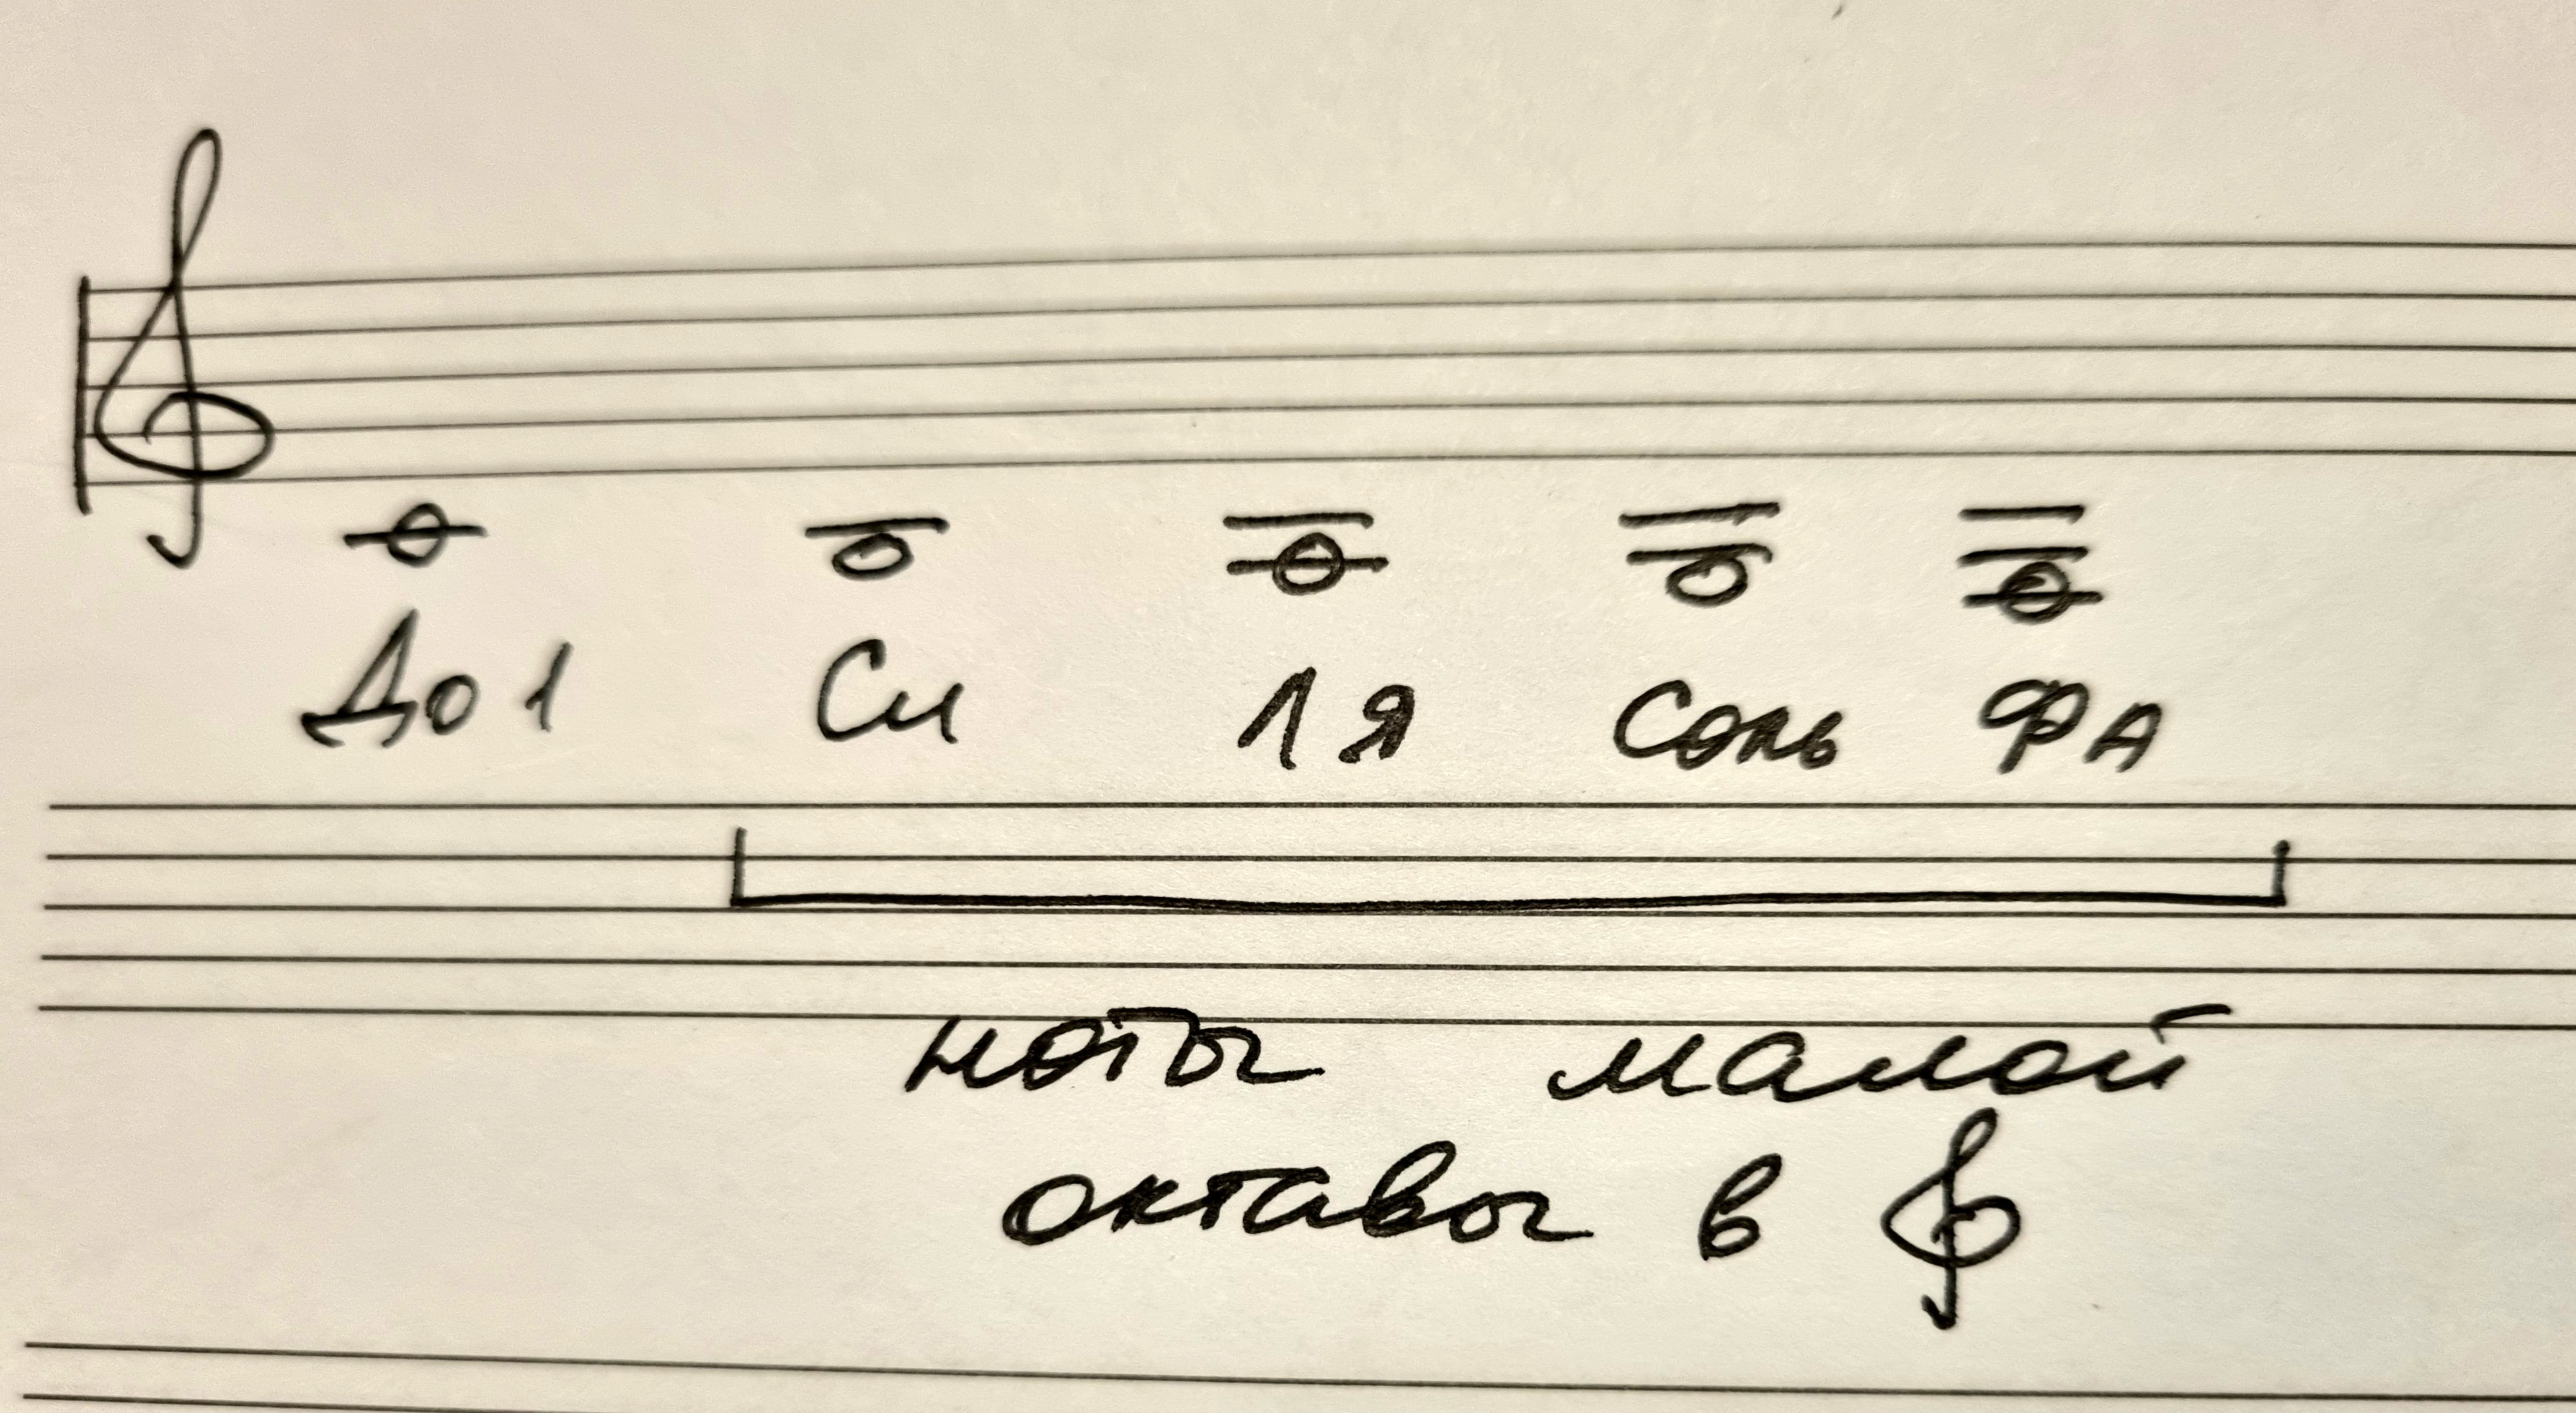 До1 Си Ля Соль ФА
ноты малой
октавы в